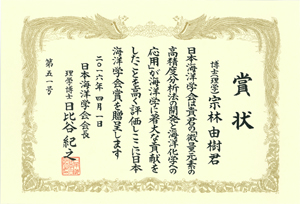 賞状
博士(理学)宗林由樹君
日本海洋学会は貴君の「微量元素の
高精度分析法の開発と海洋化学への
応用」が海洋学に著大な貢献を
したことを高く評価しここに日本
海洋学会賞を贈呈します
二〇一六年四月一日
日本海洋学会会長
理学博士日比谷紀之
第五一号